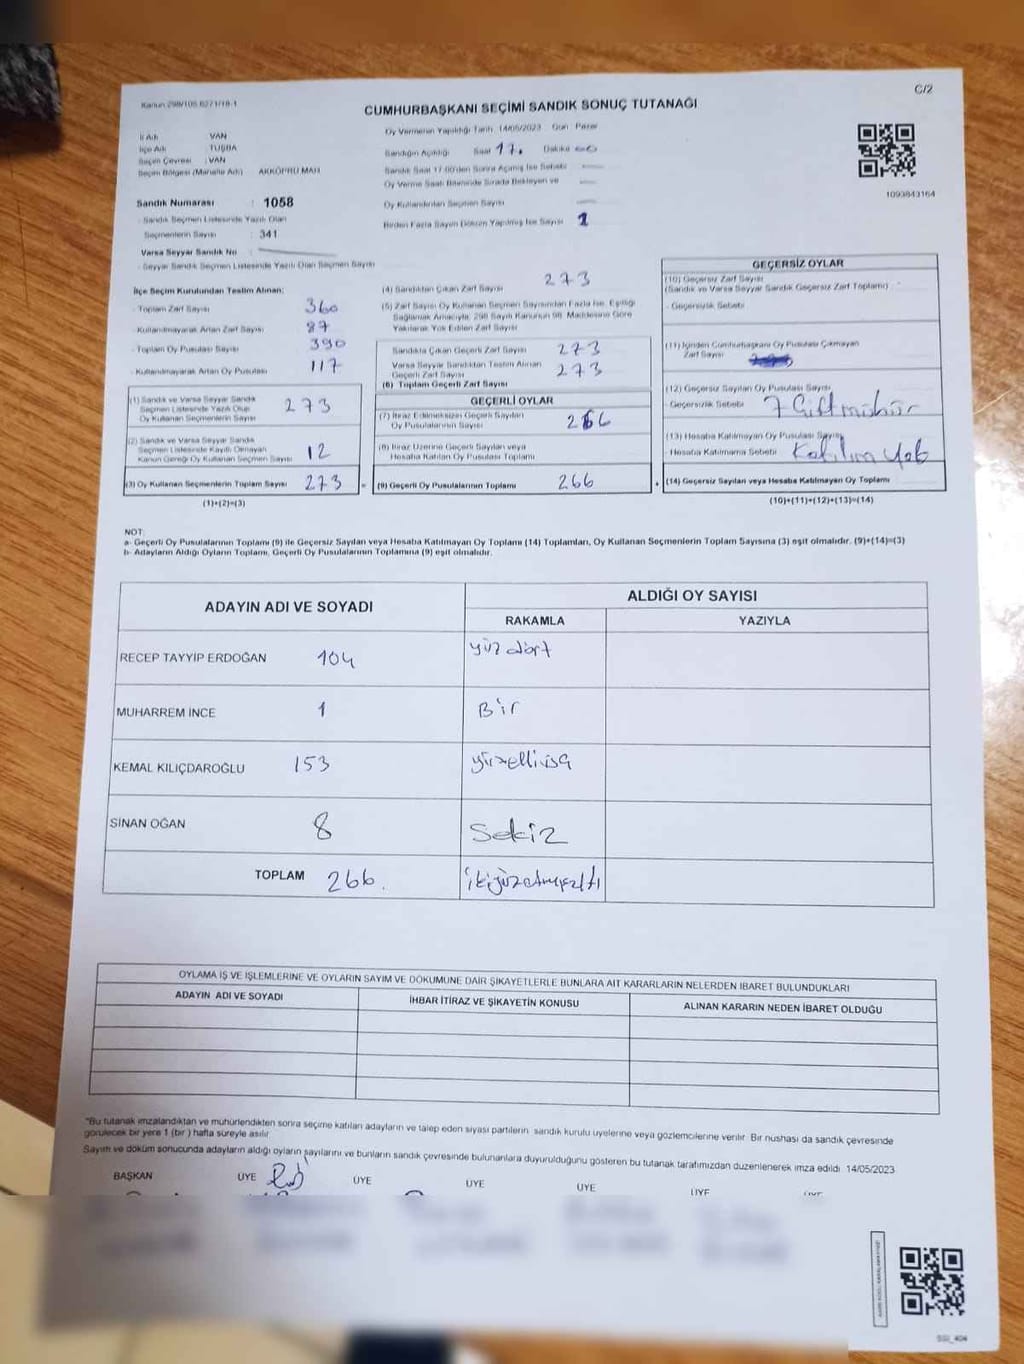 Kanun 298/105 6271/18-1
C/2
CUMHURBAŞKANI SEÇİMİ SANDIK SONUÇ TUTANAĞI
İl Adı VAN
İlçe Adı TUŞBA
Seçim Çevresi : VAN
Seçim Bölgesi (Mahalle Adı) AKKÖPRÜ MAH
Sandık Numarası : 1058
- Sandık Seçmen Listesinde Yazılı Olan
Seçmenlerin Sayısı : 341
Varsa Seyyar Sandık No
- Seyyar Sandık Seçmen Listesinde Yazılı Olan Seçmen Sayısı
Oy Vermenin Yapıldığı Tarih 14/05/2023 Gün Pazar
Sandığın Açıldığı Saat 17. Dakika
Sandık Saat 17.00'den Sonra Açılmış İse Sebebi
Oy Verme Saati Bitiminde Sırada Bekleyen ve
Oy Kullandırılan Seçmen Sayısı
Birden Fazla Sayım Döküm Yapılmış İse Sayısı 1
1093843164
İlçe Seçim Kurulundan Teslim Alınan:
- Toplam Zarf Sayısı 360
- Kullanılmayarak Artan Zarf Sayısı 87
- Toplam Oy Pusulası Sayısı 390
- Kullanılmayarak Artan Oy Pusulası 117
(1) Sandık ve Varsa Seyyar Sandık
Seçmen Listesinde Yazılı Olup
Oy Kullanan Seçmenlerin Sayısı 273
(2) Sandık ve Varsa Seyyar Sandık
Seçmen Listesinde Kayıtlı Olmayan
Kanun Gereği Oy Kullanan Seçmen Sayısı 12
(3) Oy Kullanan Seçmenlerin Toplam Sayısı 273
(1)+(2)=(3)
(4) Sandıktan Çıkan Zarf Sayısı 273
(5) Zarf Sayısı Oy Kullanan Seçmen Sayısından Fazla İse, Eşitliği
Sağlamak Amacıyla, 298 Sayılı Kanunun 98. Maddesine Göre
Yakılarak Yok Edilen Zarf Sayısı
Sandıkta Çıkan Geçerli Zarf Sayısı 273
Varsa Seyyar Sandıktan Teslim Alınan
Geçerli Zarf Sayısı 273
(6) Toplam Geçerli Zarf Sayısı
GEÇERLİ OYLAR
(7) İtiraz Edilmeksizin Geçerli Sayılan
Oy Pusulalarının Sayısı 266
(8) İtiraz Üzerine Geçerli Sayılan veya
Hesaba Katılan Oy Pusulası Toplamı
= (9) Geçerli Oy Pusulalarının Toplamı 266
GEÇERSİZ OYLAR
(10) Geçersiz Zarf Sayısı
(Sandık ve Varsa Seyyar Sandık Geçersiz Zarf Toplamı)
- Geçersizlik Sebebi
(11) İçinden Cumhurbaşkanı Oy Pusulası Çıkmayan
Zarf Sayısı
(12) Geçersiz Sayılan Oy Pusulası Sayısı
- Geçersizlik Sebebi 7 Çift mühür
(13) Hesaba Katılmayan Oy Pusulası Sayısı
- Hesaba Katılmama Sebebi Katılım yok
+ (14) Geçersiz Sayılan veya Hesaba Katılmayan Oy Toplamı
(10)+(11)+(12)+(13)=(14)
NOT:
a- Geçerli Oy Pusulalarının Toplamı (9) ile Geçersiz Sayılan veya Hesaba Katılmayan Oy Toplamı (14) Toplamları, Oy Kullanan Seçmenlerin Toplam Sayısına (3) eşit olmalıdır. (9)+(14)=(3)
b- Adayların Aldığı Oyların Toplamı, Geçerli Oy Pusulalarının Toplamına (9) eşit olmalıdır.
ADAYIN ADI VE SOYADI
ALDIĞI OY SAYISI
RAKAMLA YAZIYLA
RECEP TAYYİP ERDOĞAN 104 yüz dört
MUHARREM İNCE 1 Bir
KEMAL KILIÇDAROĞLU 153 yüzelliüç
SİNAN OĞAN 8 Sekiz
TOPLAM 266. ikiyüzatmışaltı
OYLAMA İŞ VE İŞLEMLERİNE VE OYLARIN SAYIM VE DÖKÜMÜNE DAİR ŞİKAYETLERLE BUNLARA AİT KARARLARIN NELERDEN İBARET BULUNDUKLARI
ADAYIN ADI VE SOYADI İHBAR İTİRAZ VE ŞİKAYETİN KONUSU ALINAN KARARIN NEDEN İBARET OLDUĞU
"Bu tutanak imzalandıktan ve mühürlendikten sonra seçime katılan adayların ve talep eden siyasi partilerin sandık kurulu üyelerine veya gözlemcilerine verilir. Bir nüshası da sandık çevresinde
görülecek bir yere 1 (bir) hafta süreyle asılır.
Sayım ve döküm sonucunda adayların aldığı oyların sayılarını ve bunların sandık çevresinde bulunanlara duyurulduğunu gösteren bu tutanak tarafımızdan düzenlenerek imza edildi 14/05/2023
BAŞKAN ÜYE ÜYE ÜYE ÜYE ÜYE ÜYE